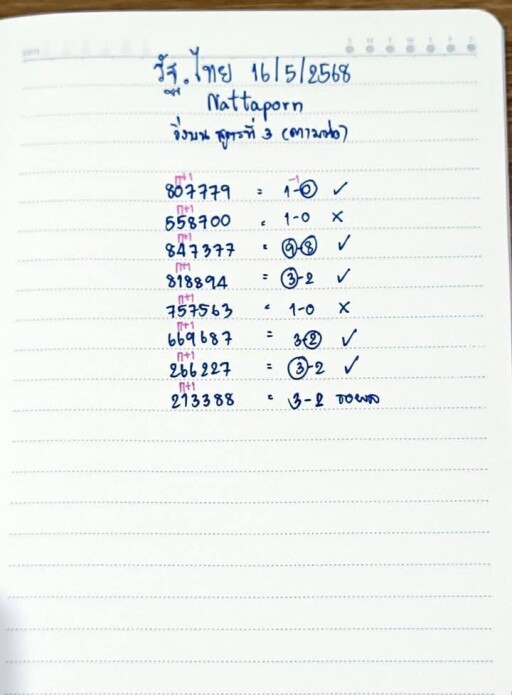 รัฐ.ไทย 16/5/2568
Nattaporn
วิ่งบน สูตรที่ 3 (ตามต่อ)
ก+1 -1
807779 = 1-0 ✓
ก+1
558700 = 1-0 ×
ก+1
847377 = 9-8 ✓
ก+1
818894 = 3-2 ✓
ก+1
757563 = 1-0 ×
ก+1
669687 = 3-2 ✓
ก+1
266227 = 3-2 ✓
ก+1
213388 = 3-2 รอผล